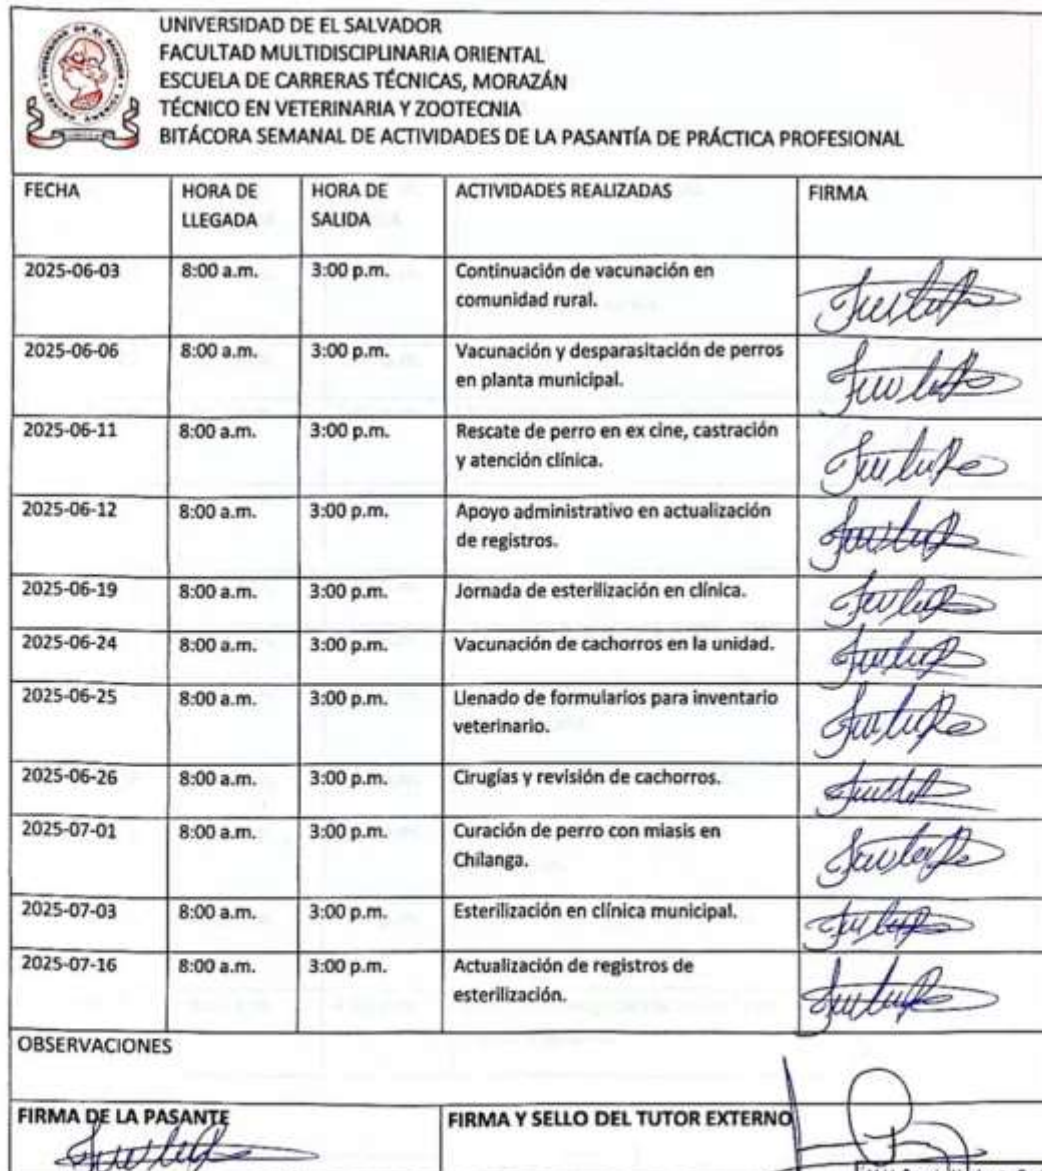 UNIVERSIDAD DE EL SALVADOR
FACULTAD MULTIDISCIPLINARIA ORIENTAL
ESCUELA DE CARRERAS TÉCNICAS, MORAZÁN
TÉCNICO EN VETERINARIA Y ZOOTECNIA
BITÁCORA SEMANAL DE ACTIVIDADES DE LA PASANTÍA DE PRÁCTICA PROFESIONAL
FECHA HORA DE LLEGADA HORA DE SALIDA ACTIVIDADES REALIZADAS FIRMA
2025-06-03 8:00 a.m. 3:00 p.m. Continuación de vacunación en
comunidad rural.
2025-06-06 8:00 a.m. 3:00 p.m. Vacunación y desparasitación de perros
en planta municipal.
2025-06-11 8:00 a.m. 3:00 p.m. Rescate de perro en ex cine, castración
y atención clínica.
2025-06-12 8:00 a.m. 3:00 p.m. Apoyo administrativo en actualización
de registros.
2025-06-19 8:00 a.m. 3:00 p.m. Jornada de esterilización en clínica.
2025-06-24 8:00 a.m. 3:00 p.m. Vacunación de cachorros en la unidad.
2025-06-25 8:00 a.m. 3:00 p.m. Llenado de formularios para inventario
veterinario.
2025-06-26 8:00 a.m. 3:00 p.m. Cirugías y revisión de cachorros.
2025-07-01 8:00 a.m. 3:00 p.m. Curación de perro con miasis en
Chilanga.
2025-07-03 8:00 a.m. 3:00 p.m. Esterilización en clínica municipal.
2025-07-16 8:00 a.m. 3:00 p.m. Actualización de registros de
esterilización.
OBSERVACIONES
FIRMA DE LA PASANTE FIRMA Y SELLO DEL TUTOR EXTERNO